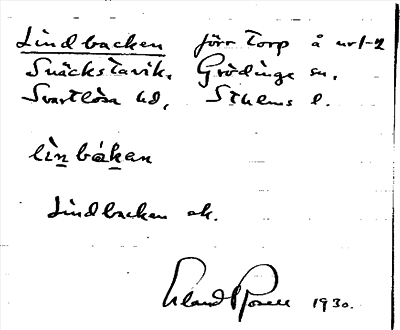 Lindbacken förr Torp å nr 1-2
Snäckstavik, Grödinge sn,
Svartlösa hd, Sthlms l.
lìn bákan
Lindbacken ok.
Erland Rosell 1930.